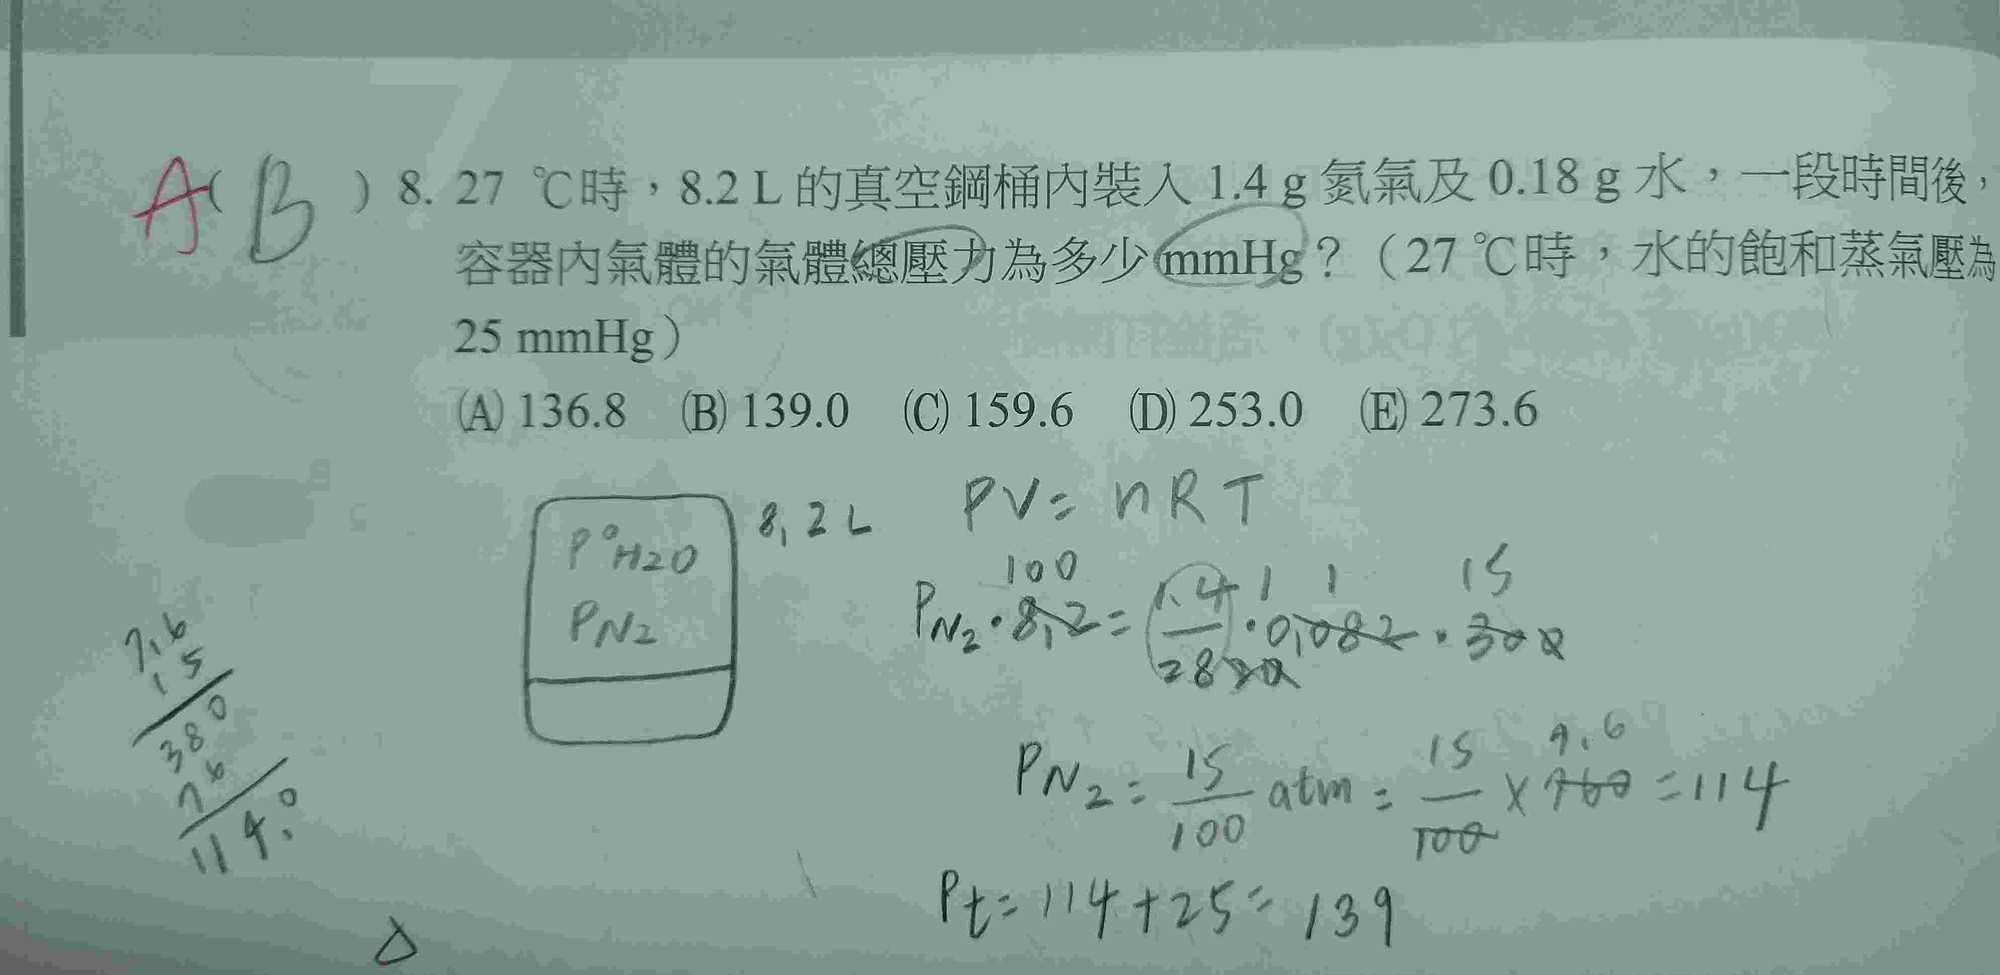 A(B)8. 27 ℃時，8.2 L 的真空鋼桶內裝入 1.4 g 氮氣及 0.18 g 水，一段時間後，
容器內氣體的氣體總壓力為多少 mmHg？（27 ℃時，水的飽和蒸氣壓為
25 mmHg）
(A) 136.8 (B) 139.0 (C) 159.6 (D) 253.0 (E) 273.6
PV = nRT
P°H2O
8.2 L
PN2
100 1 1 15
PN2 · 8.2 = 1.4/28 · 0.082 · 300
20
7.6
15
380
76
114.0
PN2 = 15/100 atm = 15/100 × 760 = 114
7.6
Pt = 114 + 25 = 139